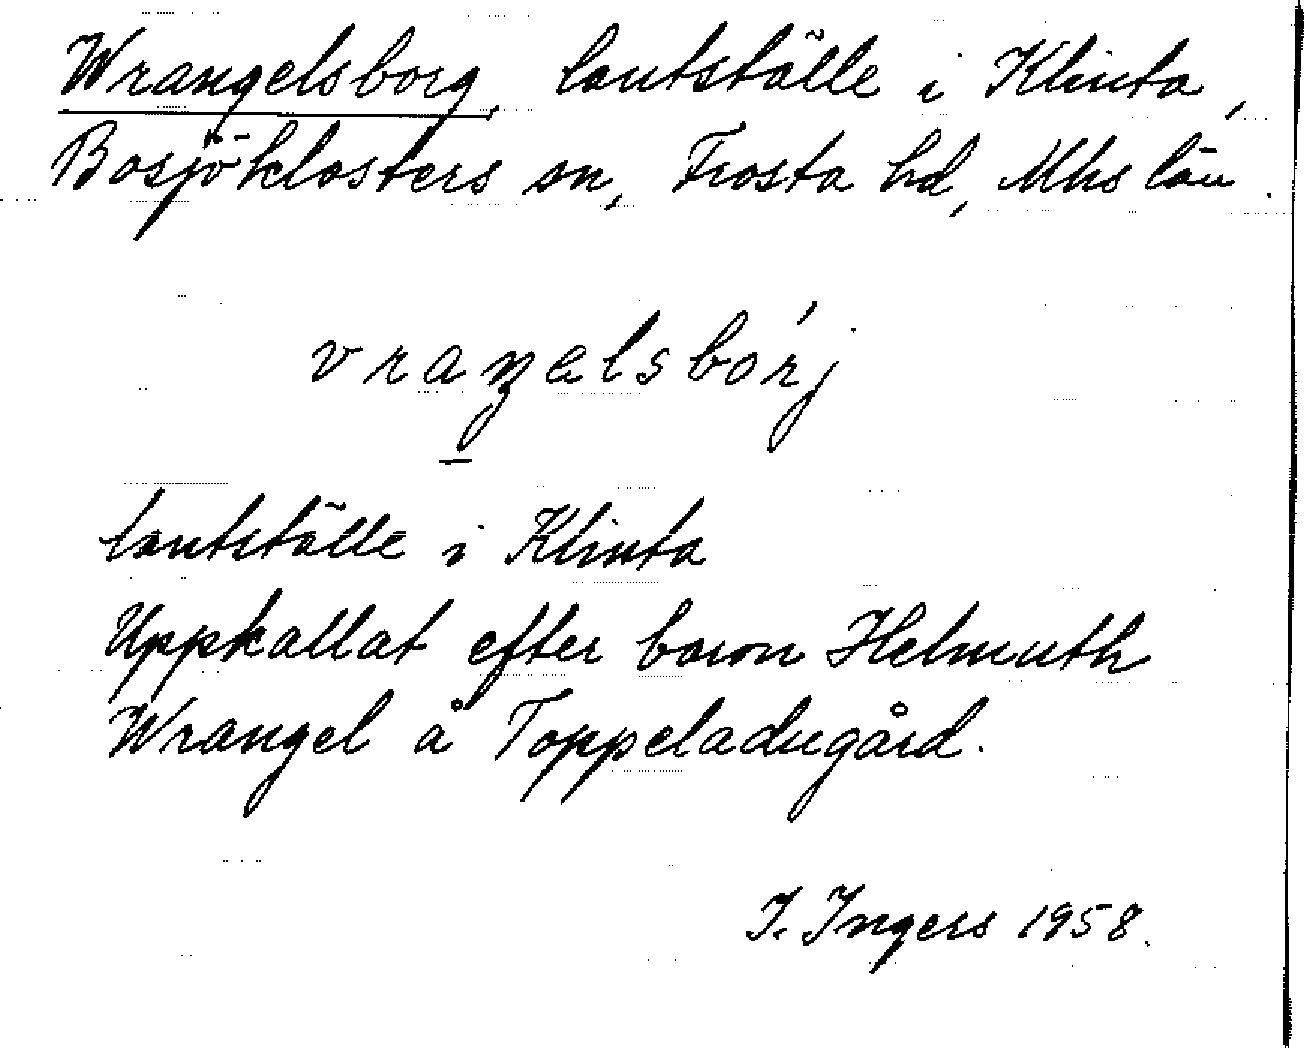 Wrangelsborg, lantställe i Klinta,
Bosjöklosters sn, Frosta hd, Mhs län.
vraŋəlsbórj
lantställe i Klinta
Uppkallat efter baron Helmuth
Wrangel å Toppeladugård.
I. Ingers 1958.